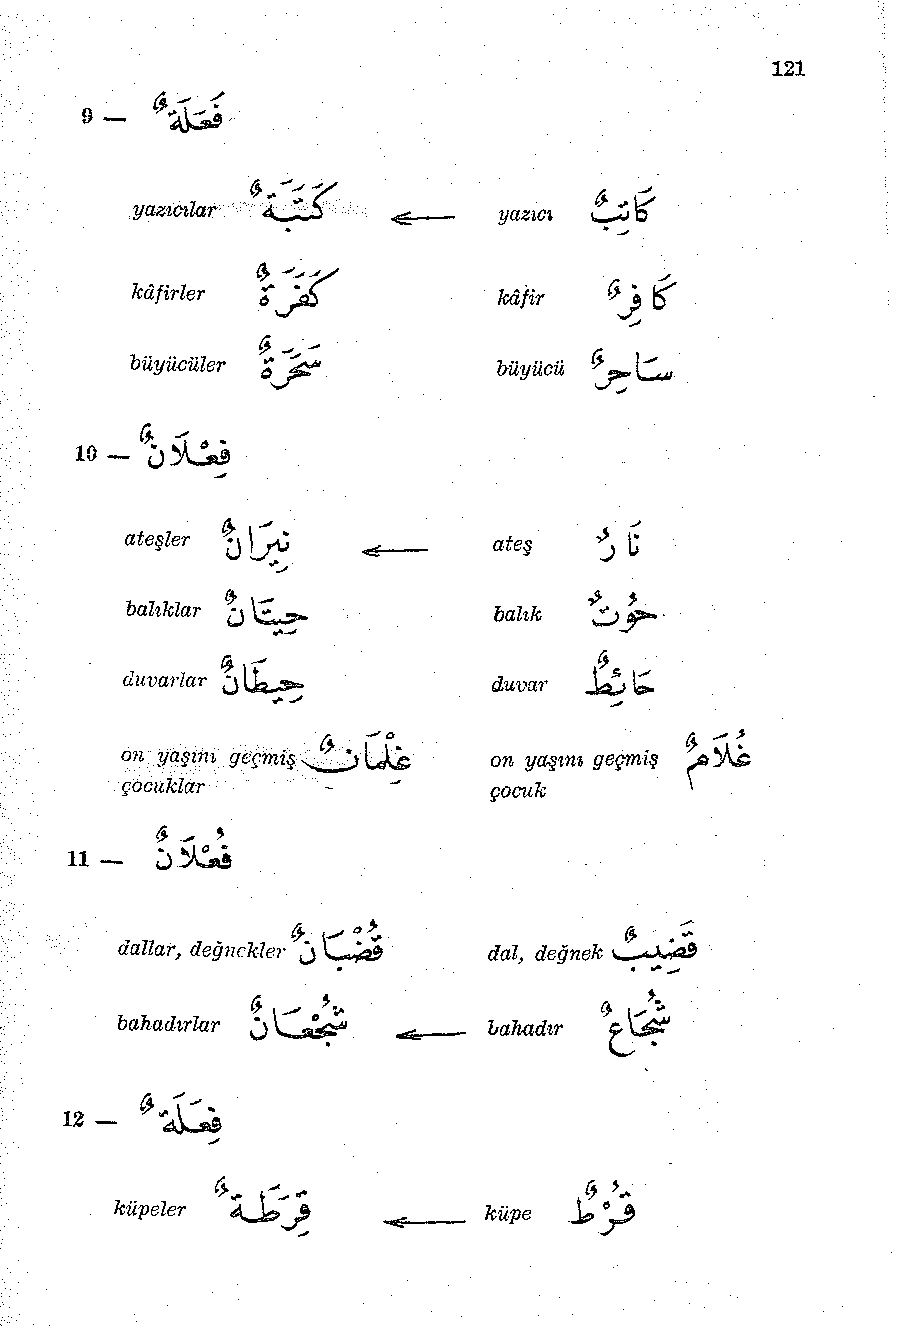 121
9 — فَعَلَةٌ
yazıcılar كَتَبَةٌ ← yazıcı كَاتِبٌ
kâfirler كَفَرَةٌ kâfir كَافِرٌ
büyücüler سَحَرَةٌ büyücü سَاحِرٌ
10 — فِعْلَانٌ
ateşler نِيرَانٌ ← ateş نَارٌ
balıklar حِيتَانٌ balık حُوتٌ
duvarlar حِيطَانٌ duvar حَائِطٌ
on yaşını geçmiş غِلْمَانٌ on yaşını geçmiş غُلَامٌ
çocuklar çocuk
11 — فُعْلَانٌ
dallar, değnekler قُضْبَانٌ dal, değnek قَضِيبٌ
bahadırlar شُجْعَانٌ ← bahadır شُجَاعٌ
12 — فِعَلَةٌ
küpeler قِرَطَةٌ ← küpe قُرْطٌ